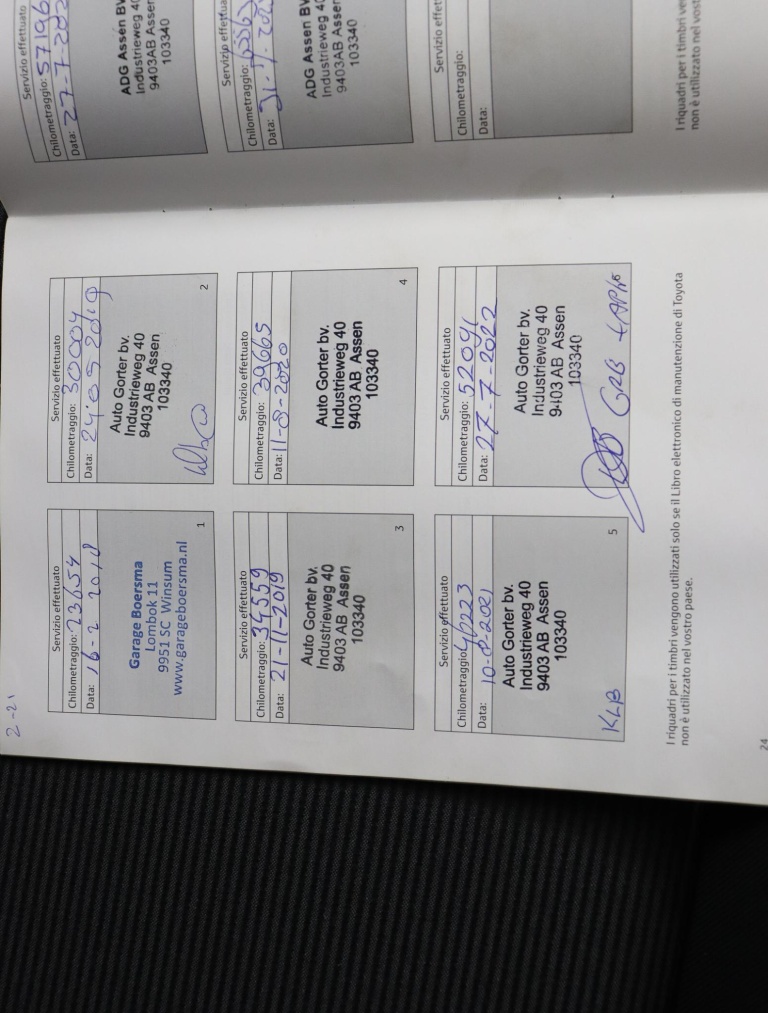 2-21
Servizio effettuato
Chilometraggio: 23654
Data: 16-2 2018
Garage Boersma
Lombok 11
9951 SC Winsum
www.garageboersma.nl
1
Servizio effettuato
Chilometraggio: 30004
Data: 24-05 2019
Auto Gorter bv.
Industrieweg 40
9403 AB Assen
103340
2
Servizio effettuato
Chilometraggio: 34559
Data: 21-11-2019
Auto Gorter bv.
Industrieweg 40
9403 AB Assen
103340
3
Servizio effettuato
Chilometraggio: 39665
Data: 11-8-2020
Auto Gorter bv.
Industrieweg 40
9403 AB Assen
103340
4
Servizio effettuato
Chilometraggio: 46223
Data: 10-8-2021
Auto Gorter bv.
Industrieweg 40
9403 AB Assen
103340
KLB
5
Servizio effettuato
Chilometraggio: 52091
Data: 27-7-2022
Auto Gorter bv.
Industrieweg 40
9403 AB Assen
103340
I riquadri per i timbri vengono utilizzati solo se il Libro elettronico di manutenzione di Toyota
non è utilizzato nel vostro paese.
24
Servizio effettuato
Chilometraggio: 57196
Data: 27-7-202
ADG Assen BV
Industrieweg 40
9403AB Assen
103340
Servizio effettua
Chilometraggio:
Data: 31-7-202
ADG Assen BV
Industrieweg 40
9403AB Assen
103340
Servizio effet
Chilometraggio:
Data:
I riquadri per i timbri
non è utilizzato nel vost